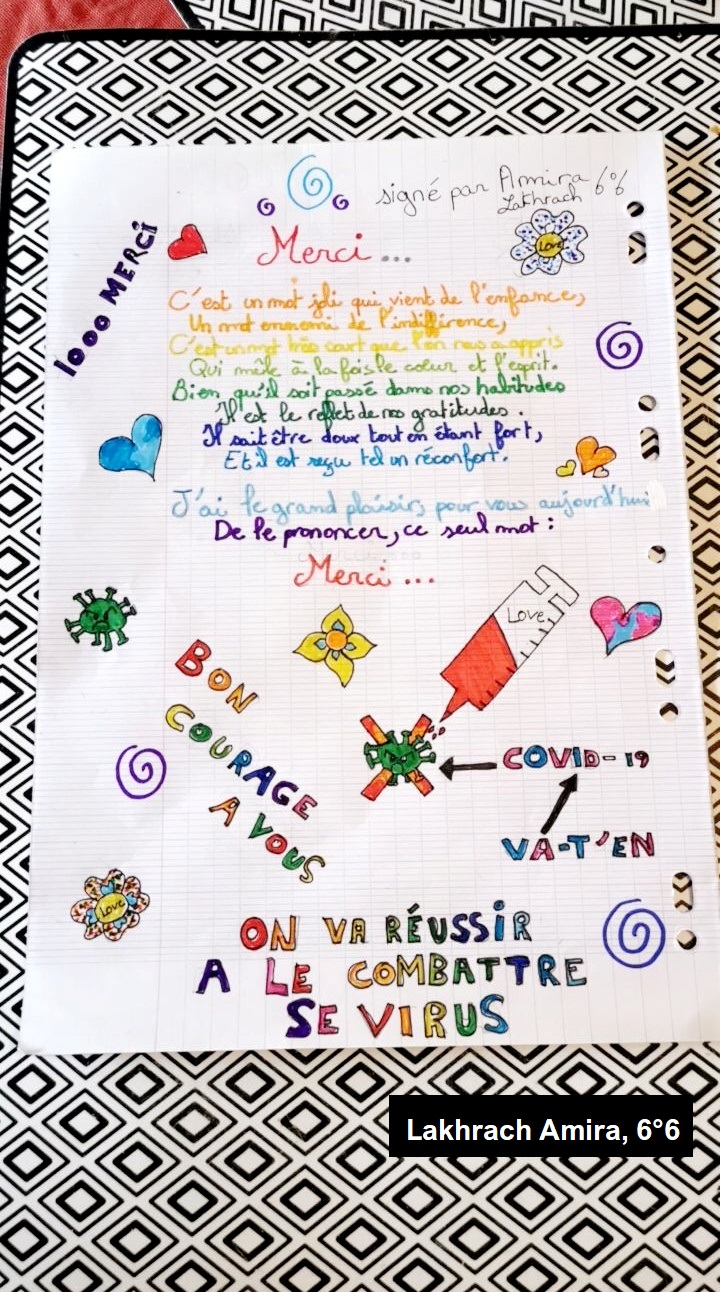 signé par Amira 6°6
Lakhrach
1000 MERCI
Merci ...
Love
C'est un mot joli qui vient de l'enfance,
Un mot ennemi de l'indifférence,
C'est un mot très court que l'on nous a appris
Qui mêle à la fois le cœur et l'esprit.
Bien qu'il soit passé dans nos habitudes
Il est le reflet de nos gratitudes.
Il sait être doux tout en étant fort,
Et il est reçu tel un réconfort.
J'ai le grand plaisir, pour vous aujourd'hui
De le prononcer, ce seul mot :
Merci ...
Love
BON
COURAGE
A VOUS
COVID-19
VA-T'EN
Love
ON VA RÉUSSIR
A LE COMBATTRE
SE VIRUS
Lakhrach Amira, 6°6